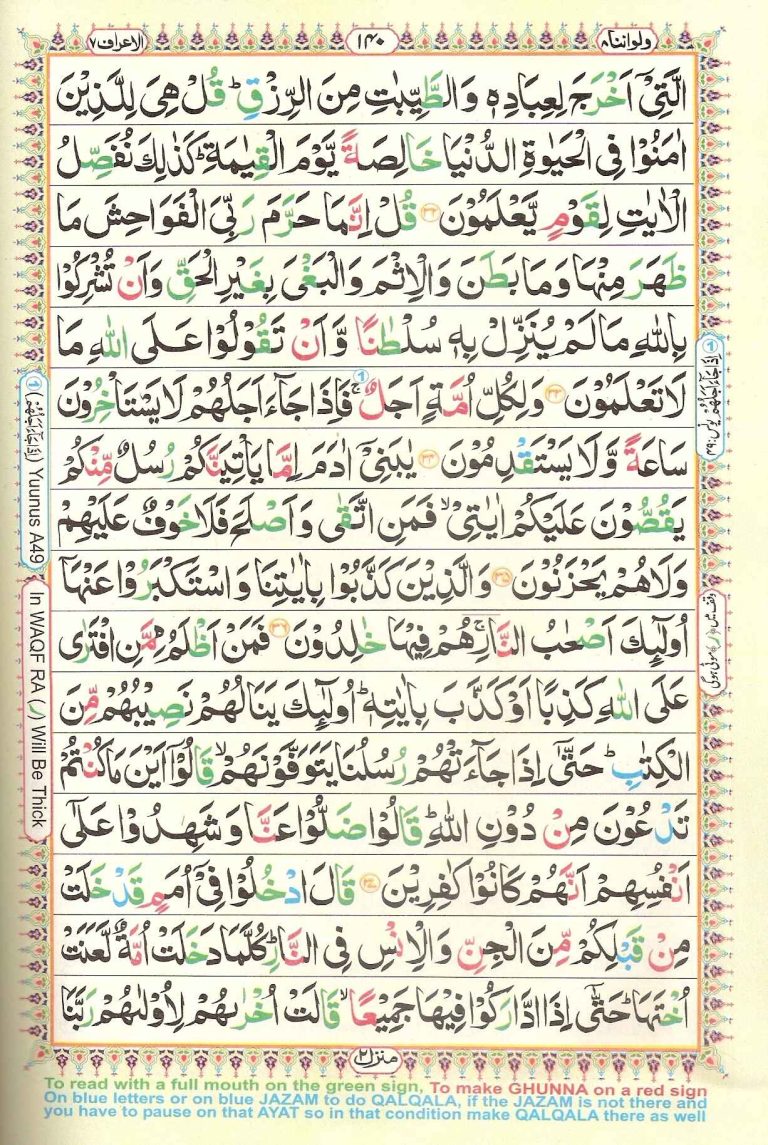 ولواننا ٨
١٤٠
الاعراف ٧
الَّتِىْۤ اَخْرَجَ لِعِبَادِهٖ وَالطَّيِّبٰتِ مِنَ الرِّزْقِؕ قُلْ هِىَ لِلَّذِيْنَ
اٰمَنُوْا فِى الْحَيٰوةِ الدُّنْيَا خَالِصَةً يَّوْمَ الْقِيٰمَةِؕ كَذٰلِكَ نُفَصِّلُ
الْاٰيٰتِ لِقَوْمٍ يَّعْلَمُوْنَ ﴿٣٢﴾ قُلْ اِنَّمَا حَرَّمَ رَبِّىَ الْفَوَاحِشَ مَا
ظَهَرَ مِنْهَا وَمَا بَطَنَ وَالْاِثْمَ وَالْبَغْىَ بِغَيْرِ الْحَقِّ وَاَنْ تُشْرِكُوْا
بِاللّٰهِ مَا لَمْ يُنَزِّلْ بِهٖ سُلْطٰنًا وَّاَنْ تَقُوْلُوْا عَلَى اللّٰهِ مَا
لَا تَعْلَمُوْنَ ﴿٣٣﴾ وَلِكُلِّ اُمَّةٍ اَجَلٌ ۚ فَاِذَا جَآءَ اَجَلُهُمْ لَا يَسْتَاْخِرُوْنَ
سَاعَةً وَّلَا يَسْتَقْدِمُوْنَ ﴿٣٤﴾ يٰبَنِىْۤ اٰدَمَ اِمَّا يَاْتِيَنَّكُمْ رُسُلٌ مِّنْكُمْ
يَقُصُّوْنَ عَلَيْكُمْ اٰيٰتِىْ ۙ فَمَنِ اتَّقٰى وَاَصْلَحَ فَلَا خَوْفٌ عَلَيْهِمْ
وَلَا هُمْ يَحْزَنُوْنَ ﴿٣٥﴾ وَالَّذِيْنَ كَذَّبُوْا بِاٰيٰتِنَا وَاسْتَكْبَرُوْا عَنْهَاۤ
اُولٰٓئِكَ اَصْحٰبُ النَّارِ ۚ هُمْ فِيْهَا خٰلِدُوْنَ ﴿٣٦﴾ فَمَنْ اَظْلَمُ مِمَّنِ افْتَرٰى
عَلَى اللّٰهِ كَذِبًا اَوْ كَذَّبَ بِاٰيٰتِهٖؕ اُولٰٓئِكَ يَنَالُهُمْ نَصِيْبُهُمْ مِّنَ
الْكِتٰبِؕ حَتّٰٓى اِذَا جَآءَتْهُمْ رُسُلُنَا يَتَوَفَّوْنَهُمْ ۙ قَالُوْۤا اَيْنَ مَا كُنْتُمْ
تَدْعُوْنَ مِنْ دُوْنِ اللّٰهِؕ قَالُوْا ضَلُّوْا عَنَّا وَشَهِدُوْا عَلٰٓى
اَنْفُسِهِمْ اَنَّهُمْ كَانُوْا كٰفِرِيْنَ ﴿٣٧﴾ قَالَ ادْخُلُوْا فِىْۤ اُمَمٍ قَدْ خَلَتْ
مِنْ قَبْلِكُمْ مِّنَ الْجِنِّ وَالْاِنْسِ فِى النَّارِؕ كُلَّمَا دَخَلَتْ اُمَّةٌ لَّعَنَتْ
اُخْتَهَاؕ حَتّٰٓى اِذَا ادَّارَكُوْا فِيْهَا جَمِيْعًا ۙ قَالَتْ اُخْرٰىهُمْ لِاُوْلٰىهُمْ رَبَّنَا
منزل ٢
① اِذَا جَآءَ اَجَلُهُمْ یونس: ٤٩
① (اِذَا جَآءَ اَجَلُهُمْ) Yuunus A49
In WAQF RA (ر) Will Be Thick
To read with a full mouth on the green sign, To make GHUNNA on a red sign
On blue letters or on blue JAZAM to do QALQALA, if the JAZAM is not there and
you have to pause on that AYAT so in that condition make QALQALA there as well